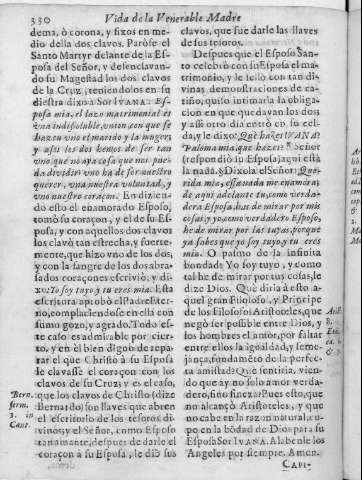 330 Vida de la Venerable Madre
dema, ò corona, y fixos en me-
dio della dos clavos. Paròse el
Santo Martyr delante de la Es-
posa del Señor, y desenclavan-
do su Magestad los dos clavos
de la Cruz, teniendolos en su
diestra dixo a Sor IVANA: Es-
posa mia, el lazo matrimonial es
vna indisoluble, union con que se
hazen vno el marido y la muger;
y assi los dos hemos de ser tan
vno, que no aya cosa que nos pue-
da dividir: vno ha de ser nuestro
querer, vna nuestra voluntad, y
vno nuestro coraçon. En dizien-
do esto el enamorado Esposo,
tomò su coraçon, y el de su Es-
posa, y con aquellos dos clavos
los clavò tan estrecha, y fuerte-
mente, que hizo vno de los dos,
y con la sangre de los dos abra-
sados coraçones escriviò, y di-
xo: Yo soy tuyo, y tu eres mia. Esta
escritura aprobò el Padre Eter-
no, complaciendose en ella con
sumo gozo, y agrado. Todo es-
te caso es admirable por cier-
to, y en èl bien digno de repa-
rar el que Christo à su Esposa
le clavasse el coraçon con los
clavos de su Cruz; y es el caso,
que los clavos de Christo (dize
Bernardo) son llaves que abren
el escritorio de los tesoros di-
vinos; y el Señor, como Esposo
tan amante, despues de darle el
coraçon à su Esposa, le diò sus
Bern.
serm.
2. in
Cant.
clavos, que fue darle las llaves
de sus tesoros.
Despues que el Esposo San-
to celebrò con su Esposa el ma-
trimonio, y le sellò con tan di-
vinas demonstraciones de ca-
riño, quiso intimarla la obliga-
cion en que quedavan los dos;
y assi otro dia entrò en su cel-
da, y le dixo: Què hazes IVANA?
Paloma mia, què hazes? Señor
(respondiò su Esposa) aqui està
la nada. Dixola el Señor: Que-
rida mia, essa nada me enamora;
de aqui adelante tu, como verda-
dera Esposa, has de mirar por mis
cosas, y yo, como verdadero Esposo,
he de mirar por las tuyas, porque
ya sabes que yo soy tuyo, y tu eres
mia. O pasmo de la infinita
bondad! Yo soy tuyo, y como
tal he de mirar por tus cosas, le
dize Dios. Què diria à esto a-
quel gran Filosofo, y Principe
de los Filosofos Aristoteles, que
negò ser possible entre Dios, y
los hombres el amor, por faltar
entre ellos la igualdad, y seme-
jança, fundamẽto de la perfec-
ta amistad? Què sentiria, vien-
do que ay no solo amor verda-
dero, sino fineza? Pues esto, que
no alcançò Aristoteles, y que
no cabe en la razon natural, cu-
po en la bõdad de Dios para su
Esposa Sor IVANA. Alabenle los
Angeles por siempre. Amen.
CAPI-